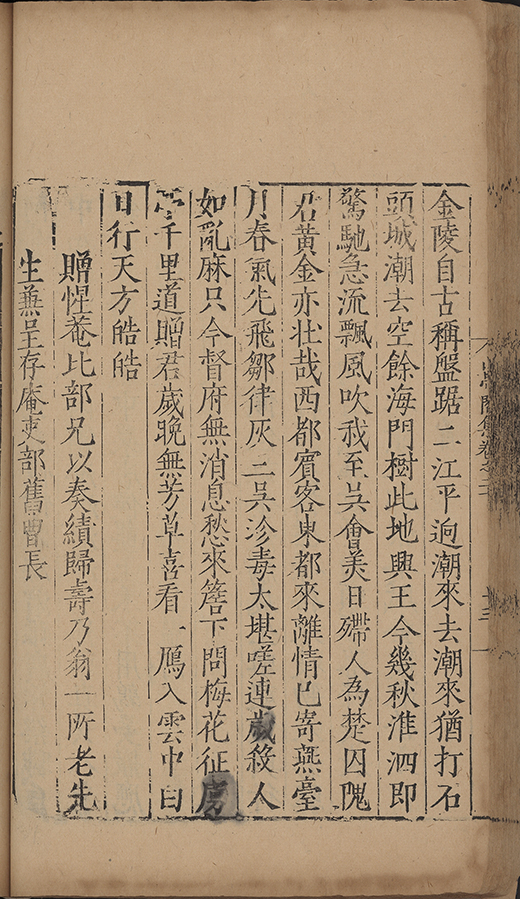 金陵自古稱盤踞二江平逈潮來去潮來猶打石
頭城潮去空餘海門樹此地興王今幾秋淮泗即
驚馳急流飄風吹我至吳會美日殢人為楚囚隗
君黃金亦壯哉西都賓客東都來離情已寄燕臺
月春氣先飛鄒律灰三吳沴毒太堪嗟連歲殺人
如亂麻只今督府無消息愁來簷下問梅花征虜
亭千里道贈君歲晚無芳草喜看一鴈入雲中白
日行天方皓皓
贈惺菴比部兄以奏績歸壽乃翁一所老先
生兼呈存庵吏部舊曹長